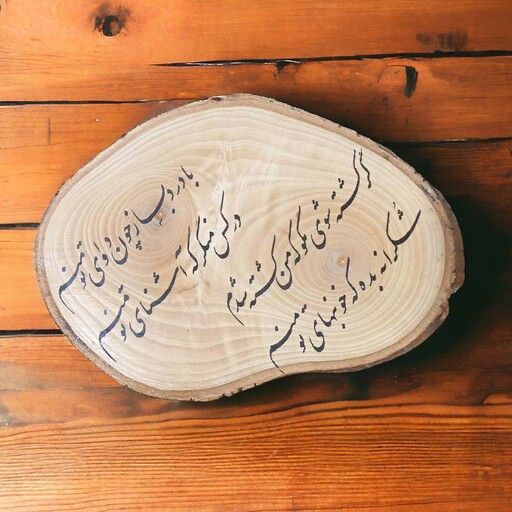 با درد بساز چون دوای تو منم
در کس منگر که آشنای تو منم
گر کشته شوی مگو که من کشته شدم
شکرانه بده که خونبهای تو منم